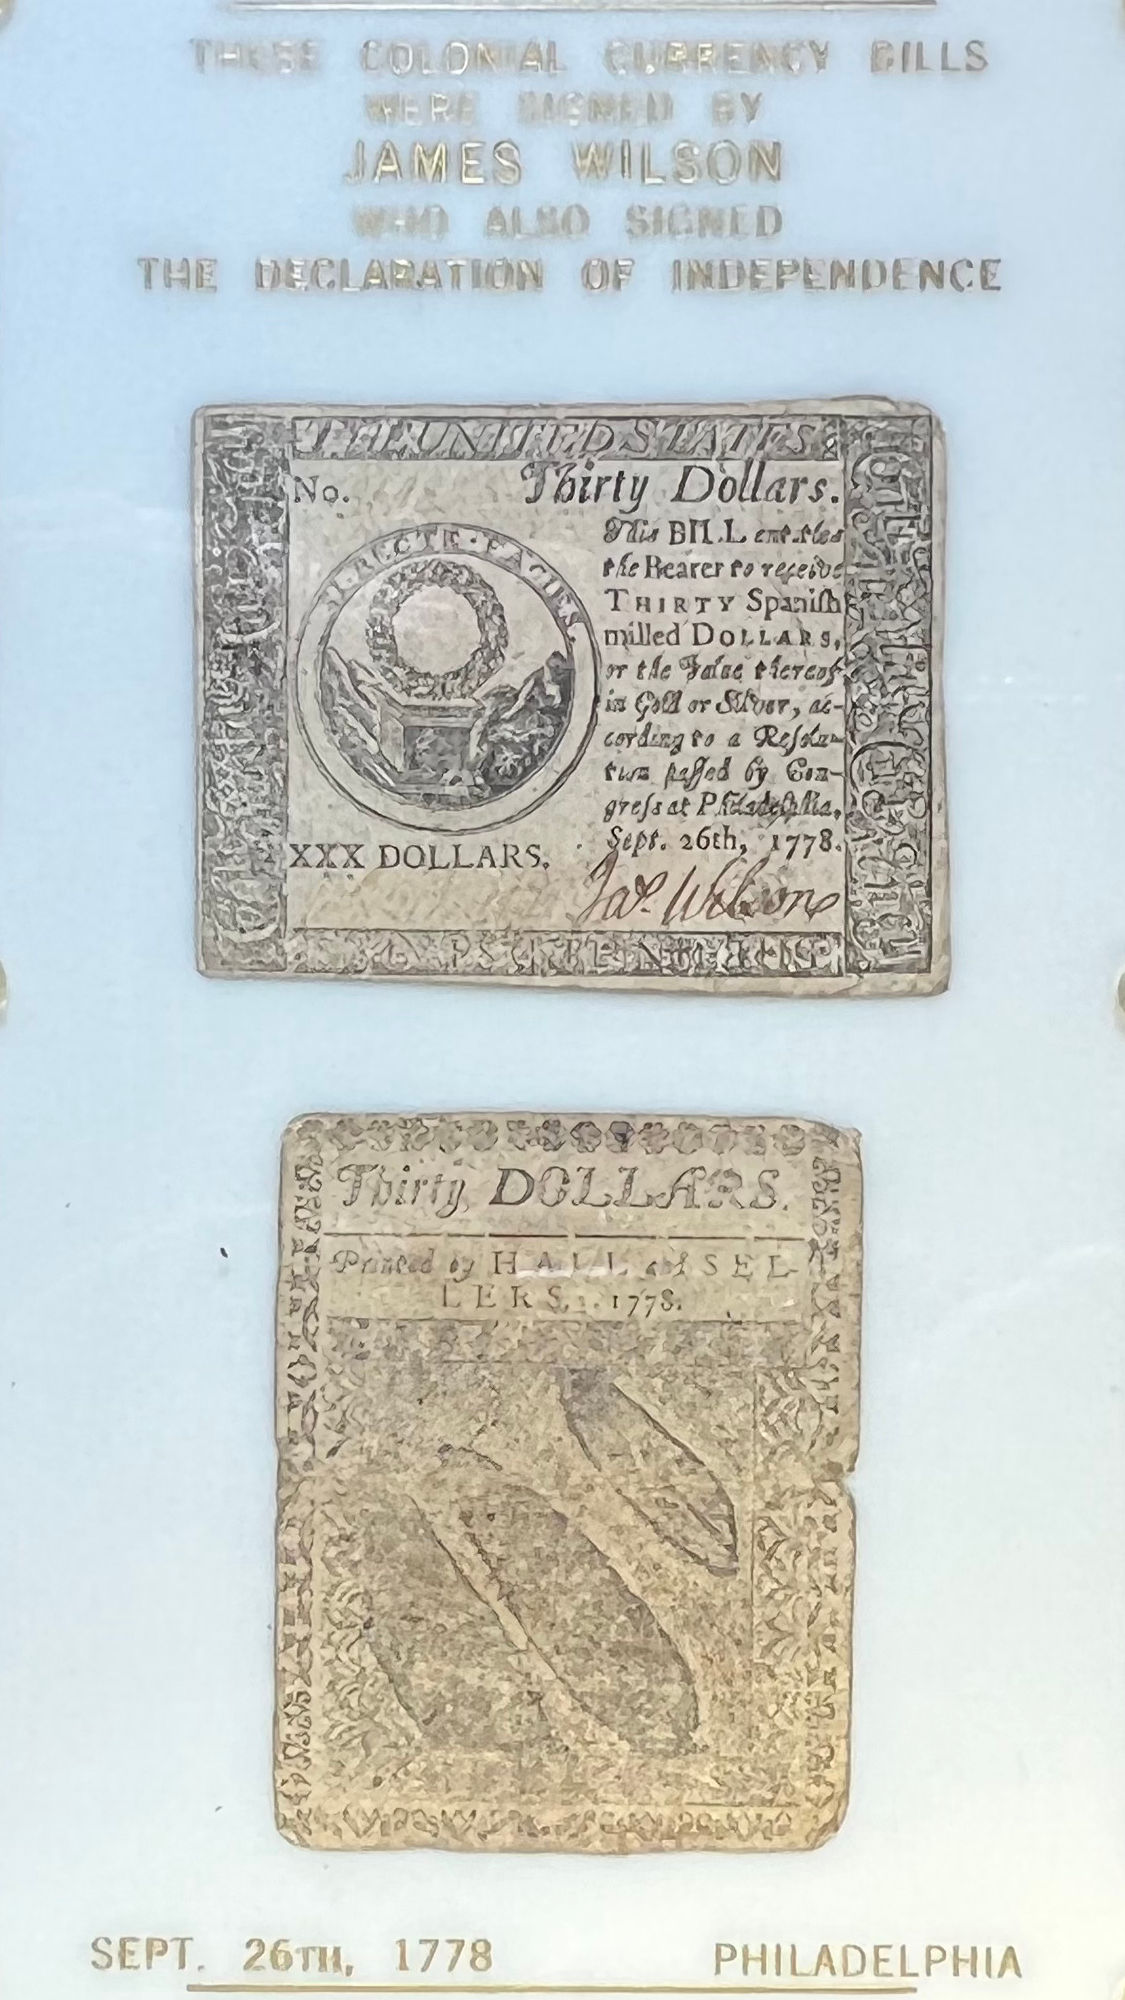 THESE COLONIAL CURRENCY BILLS
WERE SIGNED BY
JAMES WILSON
WHO ALSO SIGNED
THE DECLARATION OF INDEPENDENCE
THE UNITED STATES
No. Thirty Dollars.
SI RECTE FACIES.
This BILL entitles
the Bearer to receive
THIRTY Spanish
milled DOLLARS,
or the Value thereof
in Gold or Silver, ac-
cording to a Resolu-
tion passed by Con-
gress at Philadelphia,
Sept. 26th, 1778.
XXX DOLLARS.
Jas. Wilson
Thirty DOLLARS.
Printed by HALL and SEL-
LERS. 1778.
SEPT. 26TH, 1778 PHILADELPHIA